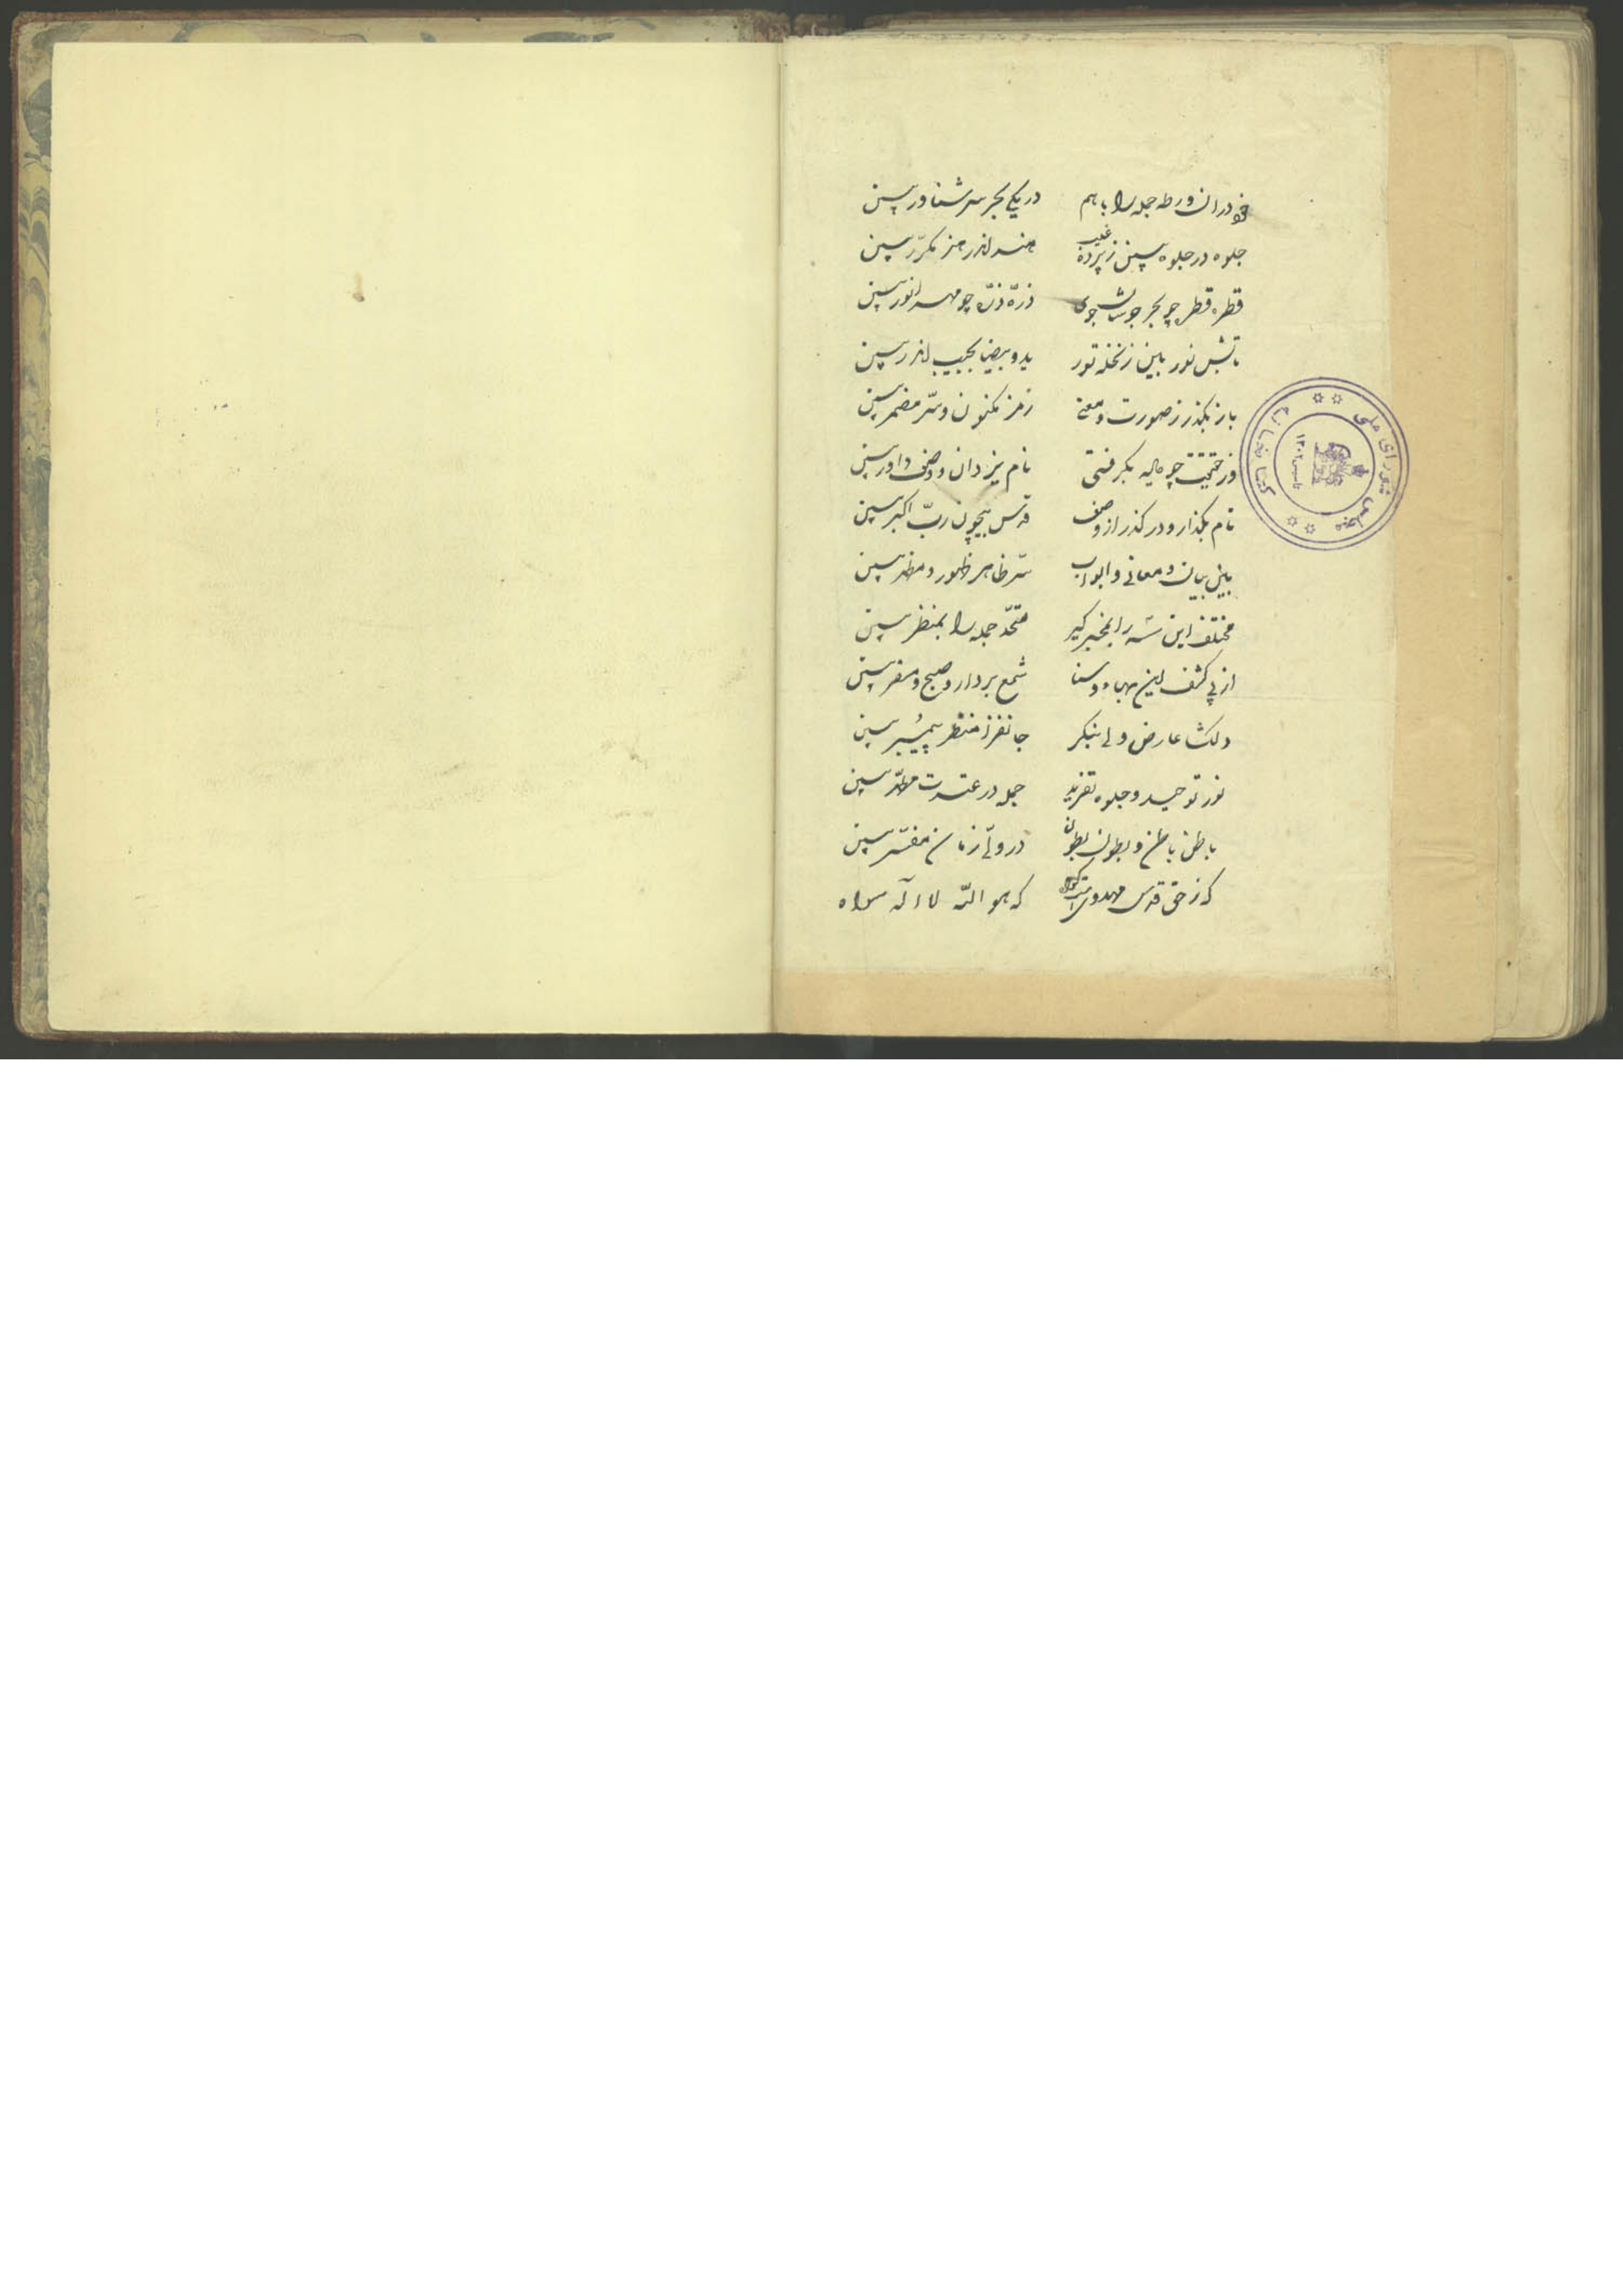 خود در آن ورطه جمله را باهم در یکی بحر سر شناور بین
جلوه در جلوه بین ز پرده غیب هنر اندر هنر مکرّر بین
قطره قطره چو بحر جوشش جوی ذرّه ذرّه چو مهر انور بین
تابش نور بین ز نخله تور ید و بیضا بجیب اندر بین
باز بگذر ز صورت و معنی رمز مکنون و سرّ مضمر بین
ور حقیقت چو مایه بگرفتی نام یزدان و وصف داور بین
نام بگذار و در گذر از وصف قدس بیچون ربّ اکبر بین
بین بیان و معانی و ابواب سرّ ظاهر ظهور و مظهر بین
مختلف این سه را بمخبر گیر متحّد جمله را بمنظر بین
از پی کشف این بهاء و سنا شمع بردار و صبح و مسفر بین
دلکش عارض ولی بنگر جانفزا منظر پیمبر بین
نور توحید و جلوه تفرید جمله در عترت مطهّر بین
باطن باطن و بطون بطون در ولّی زمان مفسّر بین
که ز حق قدس مهدوی است گواه که هو اللّه لا اله سواه
کتابخانه مجلس شورای ملی
تاسیس ۱۳۰۲